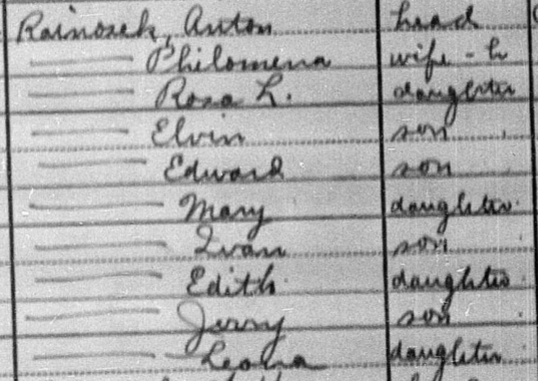 Rainosek, Anton head
Philomena wife - h
Rosa L. daughter
Elvin son
Edward son
Mary daughter
Ivan son
Edith daughter
Jerry son
Leona daughter